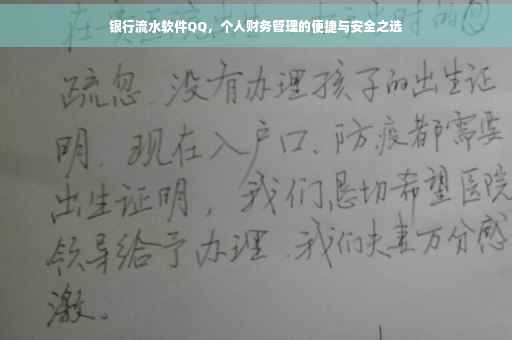 银行流水软件QQ，个人财务管理的便捷与安全之选
疏忽、没有办理孩子的出生证
明、现在入户口、防疫都需要
出生证明，我们恳切希望医院
领导给予办理、我们夫妻万分感
激。